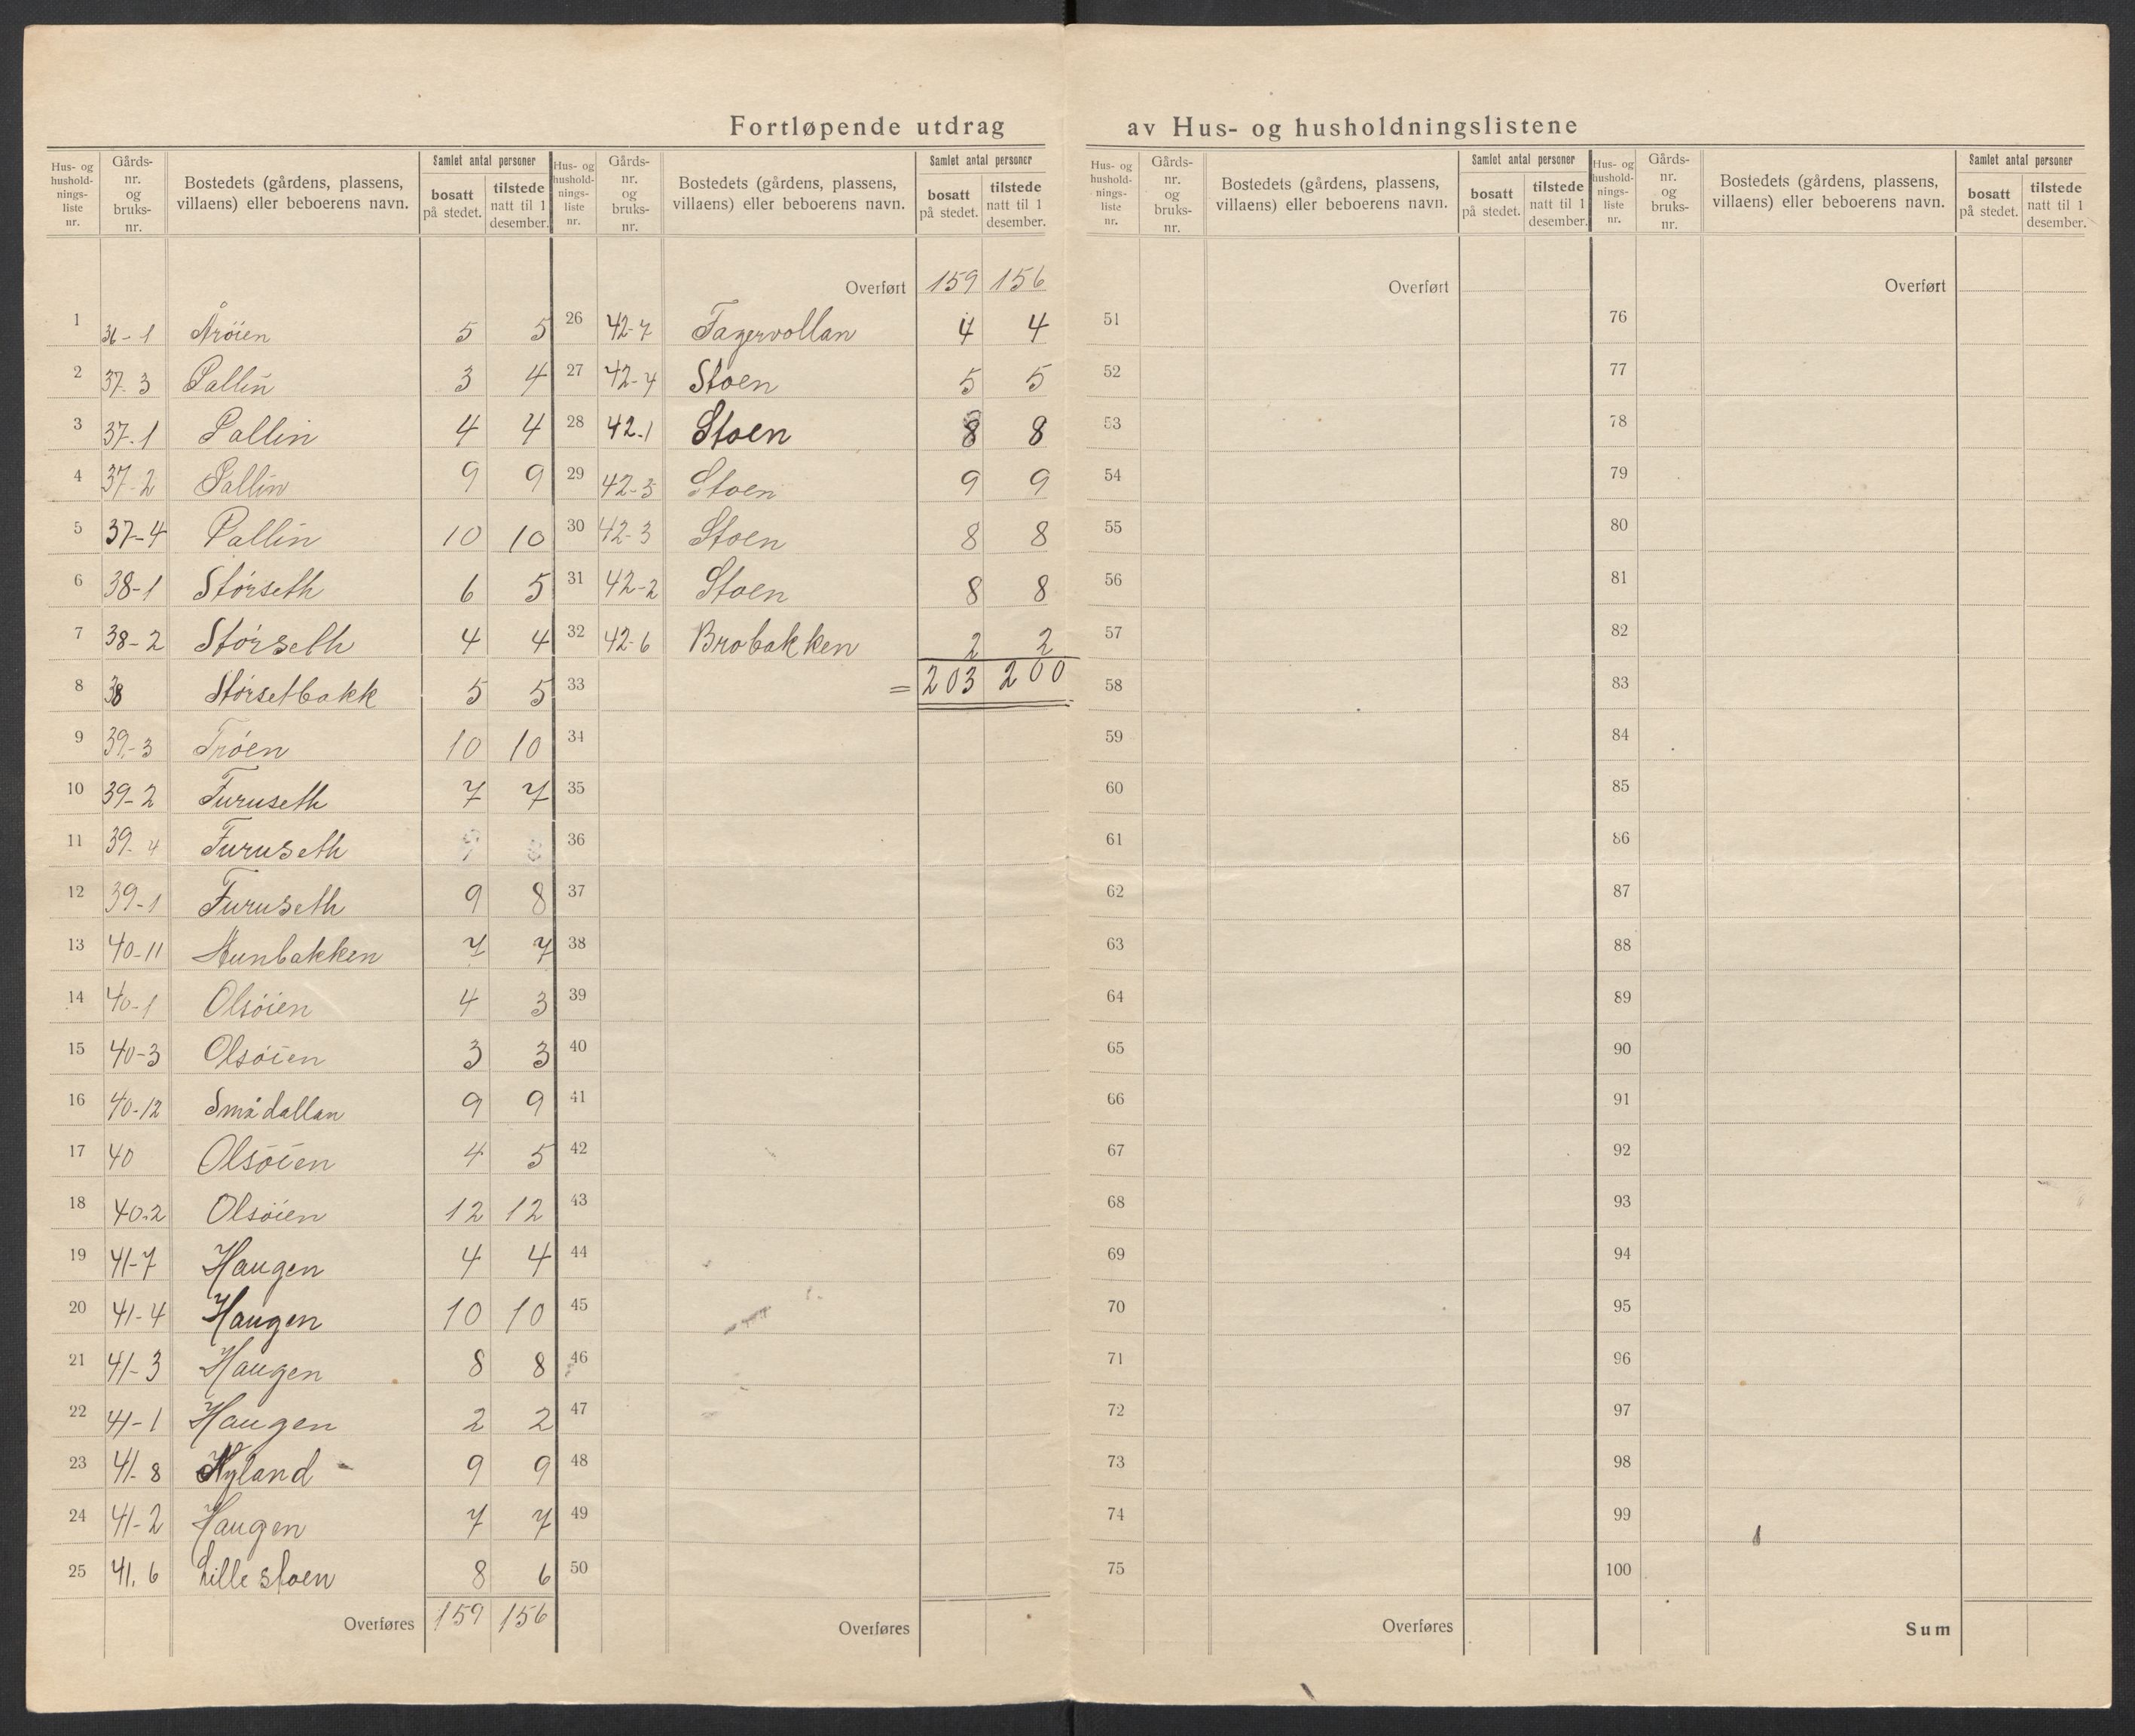 Fortløpende utdrag av Hus- og husholdningslistene
Hus- og hushold-nings-liste nr. | Gårds-nr. og bruks-nr. | Bostedets (gårdens, plassens, villaens) eller beboerens navn. | Samlet antal personer | bosatt på stedet. | tilstede natt til 1 desember.
1 36-1 Årøien 5 5
2 37.3 Pallin 3 4
3 37.1 Pallin 4 4
4 37-2 Pallin 9 9
5 37-4 Pallin 10 10
6 38-1 Störseth 6 5
7 38-2 Störseth 4 4
8 38 Störsetbakk 5 5
9 39-3 Tröen 10 10
10 39-2 Furuseth 7 7
11 39-4 Furuseth
12 39-1 Furuseth 9 8
13 40-11 Aunbakken 7 7
14 40-1 Olsöien 4 3
15 40-3 Olsöien 3 3
16 40-12 Smådallan 9 9
17 40 Olsöien 4 5
18 40.2 Olsöien 12 12
19 41-7 Haugen 4 4
20 41-4 Haugen 10 10
21 41-3 Haugen 8 8
22 41-1 Haugen 2 2
23 41-8 Nyland 9 9
24 41-2 Haugen 7 7
25 41.6 Lille stoen 8 6
Overføres 159 156
Hus- og hushold-nings-liste nr. | Gårds-nr. og bruks-nr. | Bostedets (gårdens, plassens, villaens) eller beboerens navn. | Samlet antal personer | bosatt på stedet. | tilstede natt til 1 desember.
Overført 159 156
26 42-7 Fagervollan 4 4
27 42-4 Stoen 5 5
28 42.1 Stoen 8 8
29 42-5 Stoen 9 9
30 42-3 Stoen 8 8
31 42-2 Stoen 8 8
32 42-6 Brobakken 2 2
33 = 203 200
34
35
36
37
38
39
40
41
42
43
44
45
46
47
48
49
50
Overføres
Hus- og hushold-nings-liste nr. | Gårds-nr. og bruks-nr. | Bostedets (gårdens, plassens, villaens) eller beboerens navn. | Samlet antal personer | bosatt på stedet. | tilstede natt til 1 desember.
Overført
51
52
53
54
55
56
57
58
59
60
61
62
63
64
65
66
67
68
69
70
71
72
73
74
75
Overføres
Hus- og hushold-nings-liste nr. | Gårds-nr. og bruks-nr. | Bostedets (gårdens, plassens, villaens) eller beboerens navn. | Samlet antal personer | bosatt på stedet. | tilstede natt til 1 desember.
Overført
76
77
78
79
80
81
82
83
84
85
86
87
88
89
90
91
92
93
94
95
96
97
98
99
100
Sum